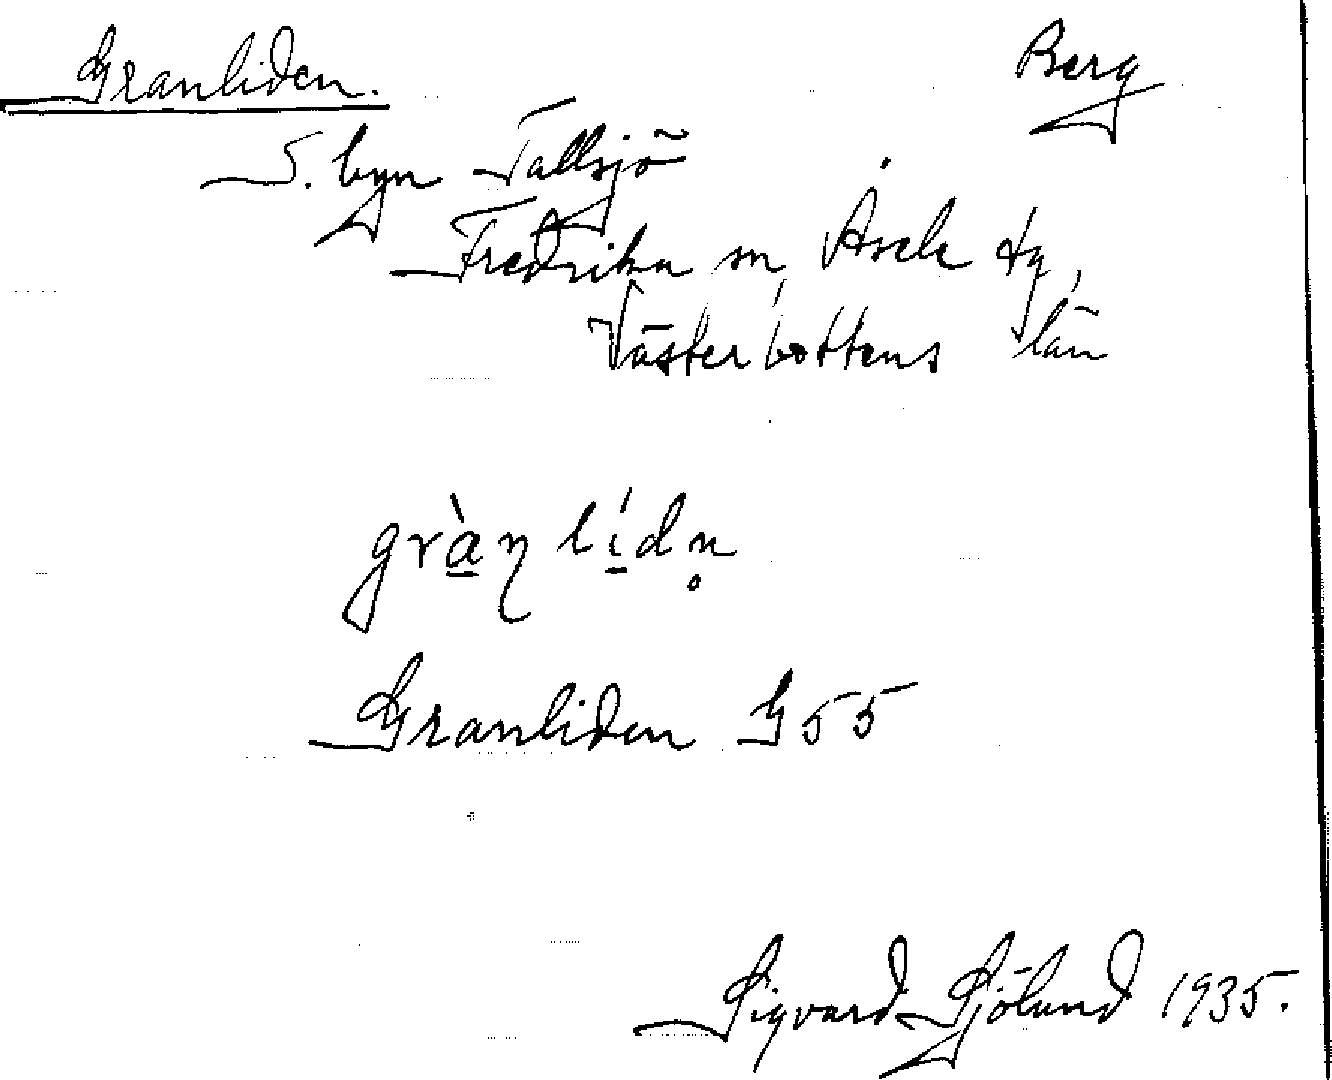 Granliden. Berg
S. byn Tallsjö
Fredrika sn, Åsele tg,
Västerbottens län
grànlídn̥
Granliden G55
Sigvard Sjölund 1935.